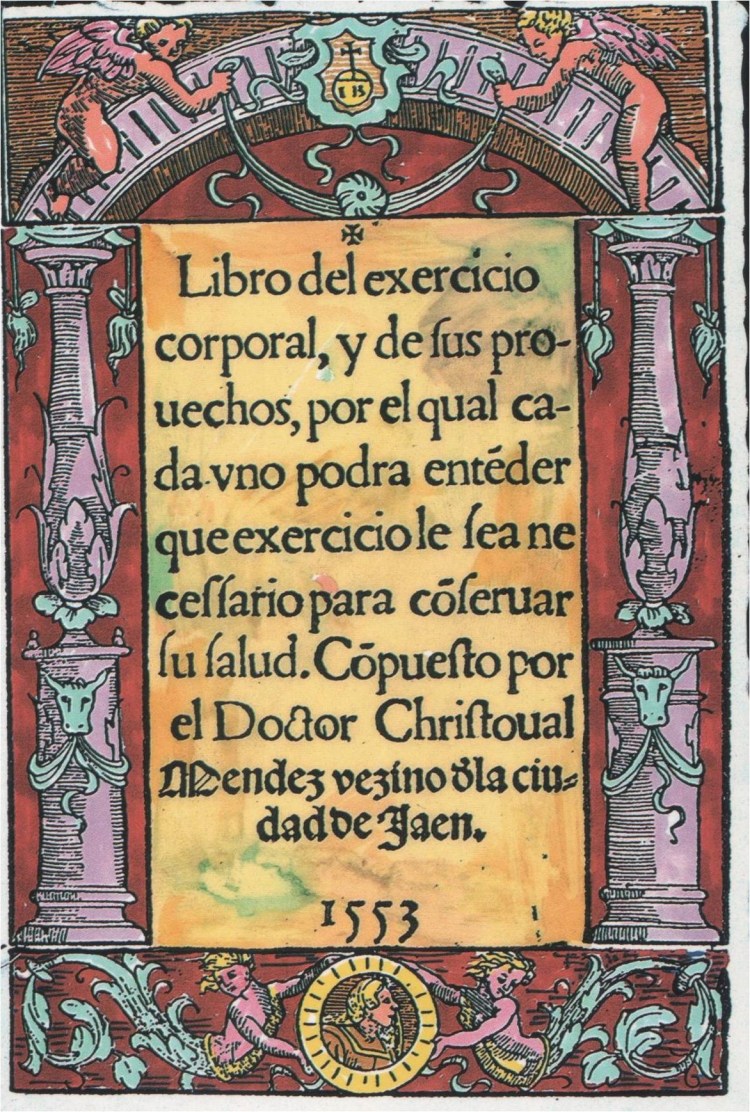 I B
✠
Libro del exercicio
corporal, y de ſus pro-
uechos, por el qual ca-
da vno podra entẽder
que exercicio le ſea ne
ceſſario para cõſeruar
ſu ſalud. Cõpueſto por
el Doctor Chriſtoual
Mendez vezino d̃la ciu-
dad de Jaen.
1553